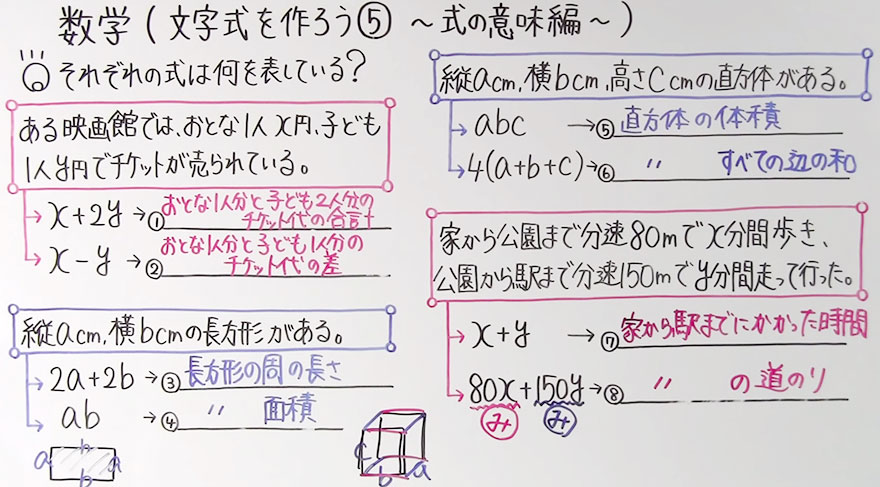 数学(文字式を作ろう⑤ ～式の意味編～)
それぞれの式は何を表している?
ある映画館では、おとな1人x円、子ども
1人y円でチケットが売られている。
x+2y→① おとな1人分と子ども2人分の
チケット代の合計
x-y→② おとな1人分と子ども1人分の
チケット代の差
縦acm,横bcmの長方形がある。
2a+2b→③ 長方形の周の長さ
ab→④ 〃 面積
b
a a
b
縦acm,横bcm,高さCcmの直方体がある。
abc→⑤ 直方体の体積
4(a+b+c)→⑥ 〃 すべての辺の和
c
b a
家から公園まで分速80mでx分間歩き、
公園から駅まで分速150mでy分間走って行った。
x+y→⑦ 家から駅までにかかった時間
80x+150y→⑧ 〃 の道のり
み み